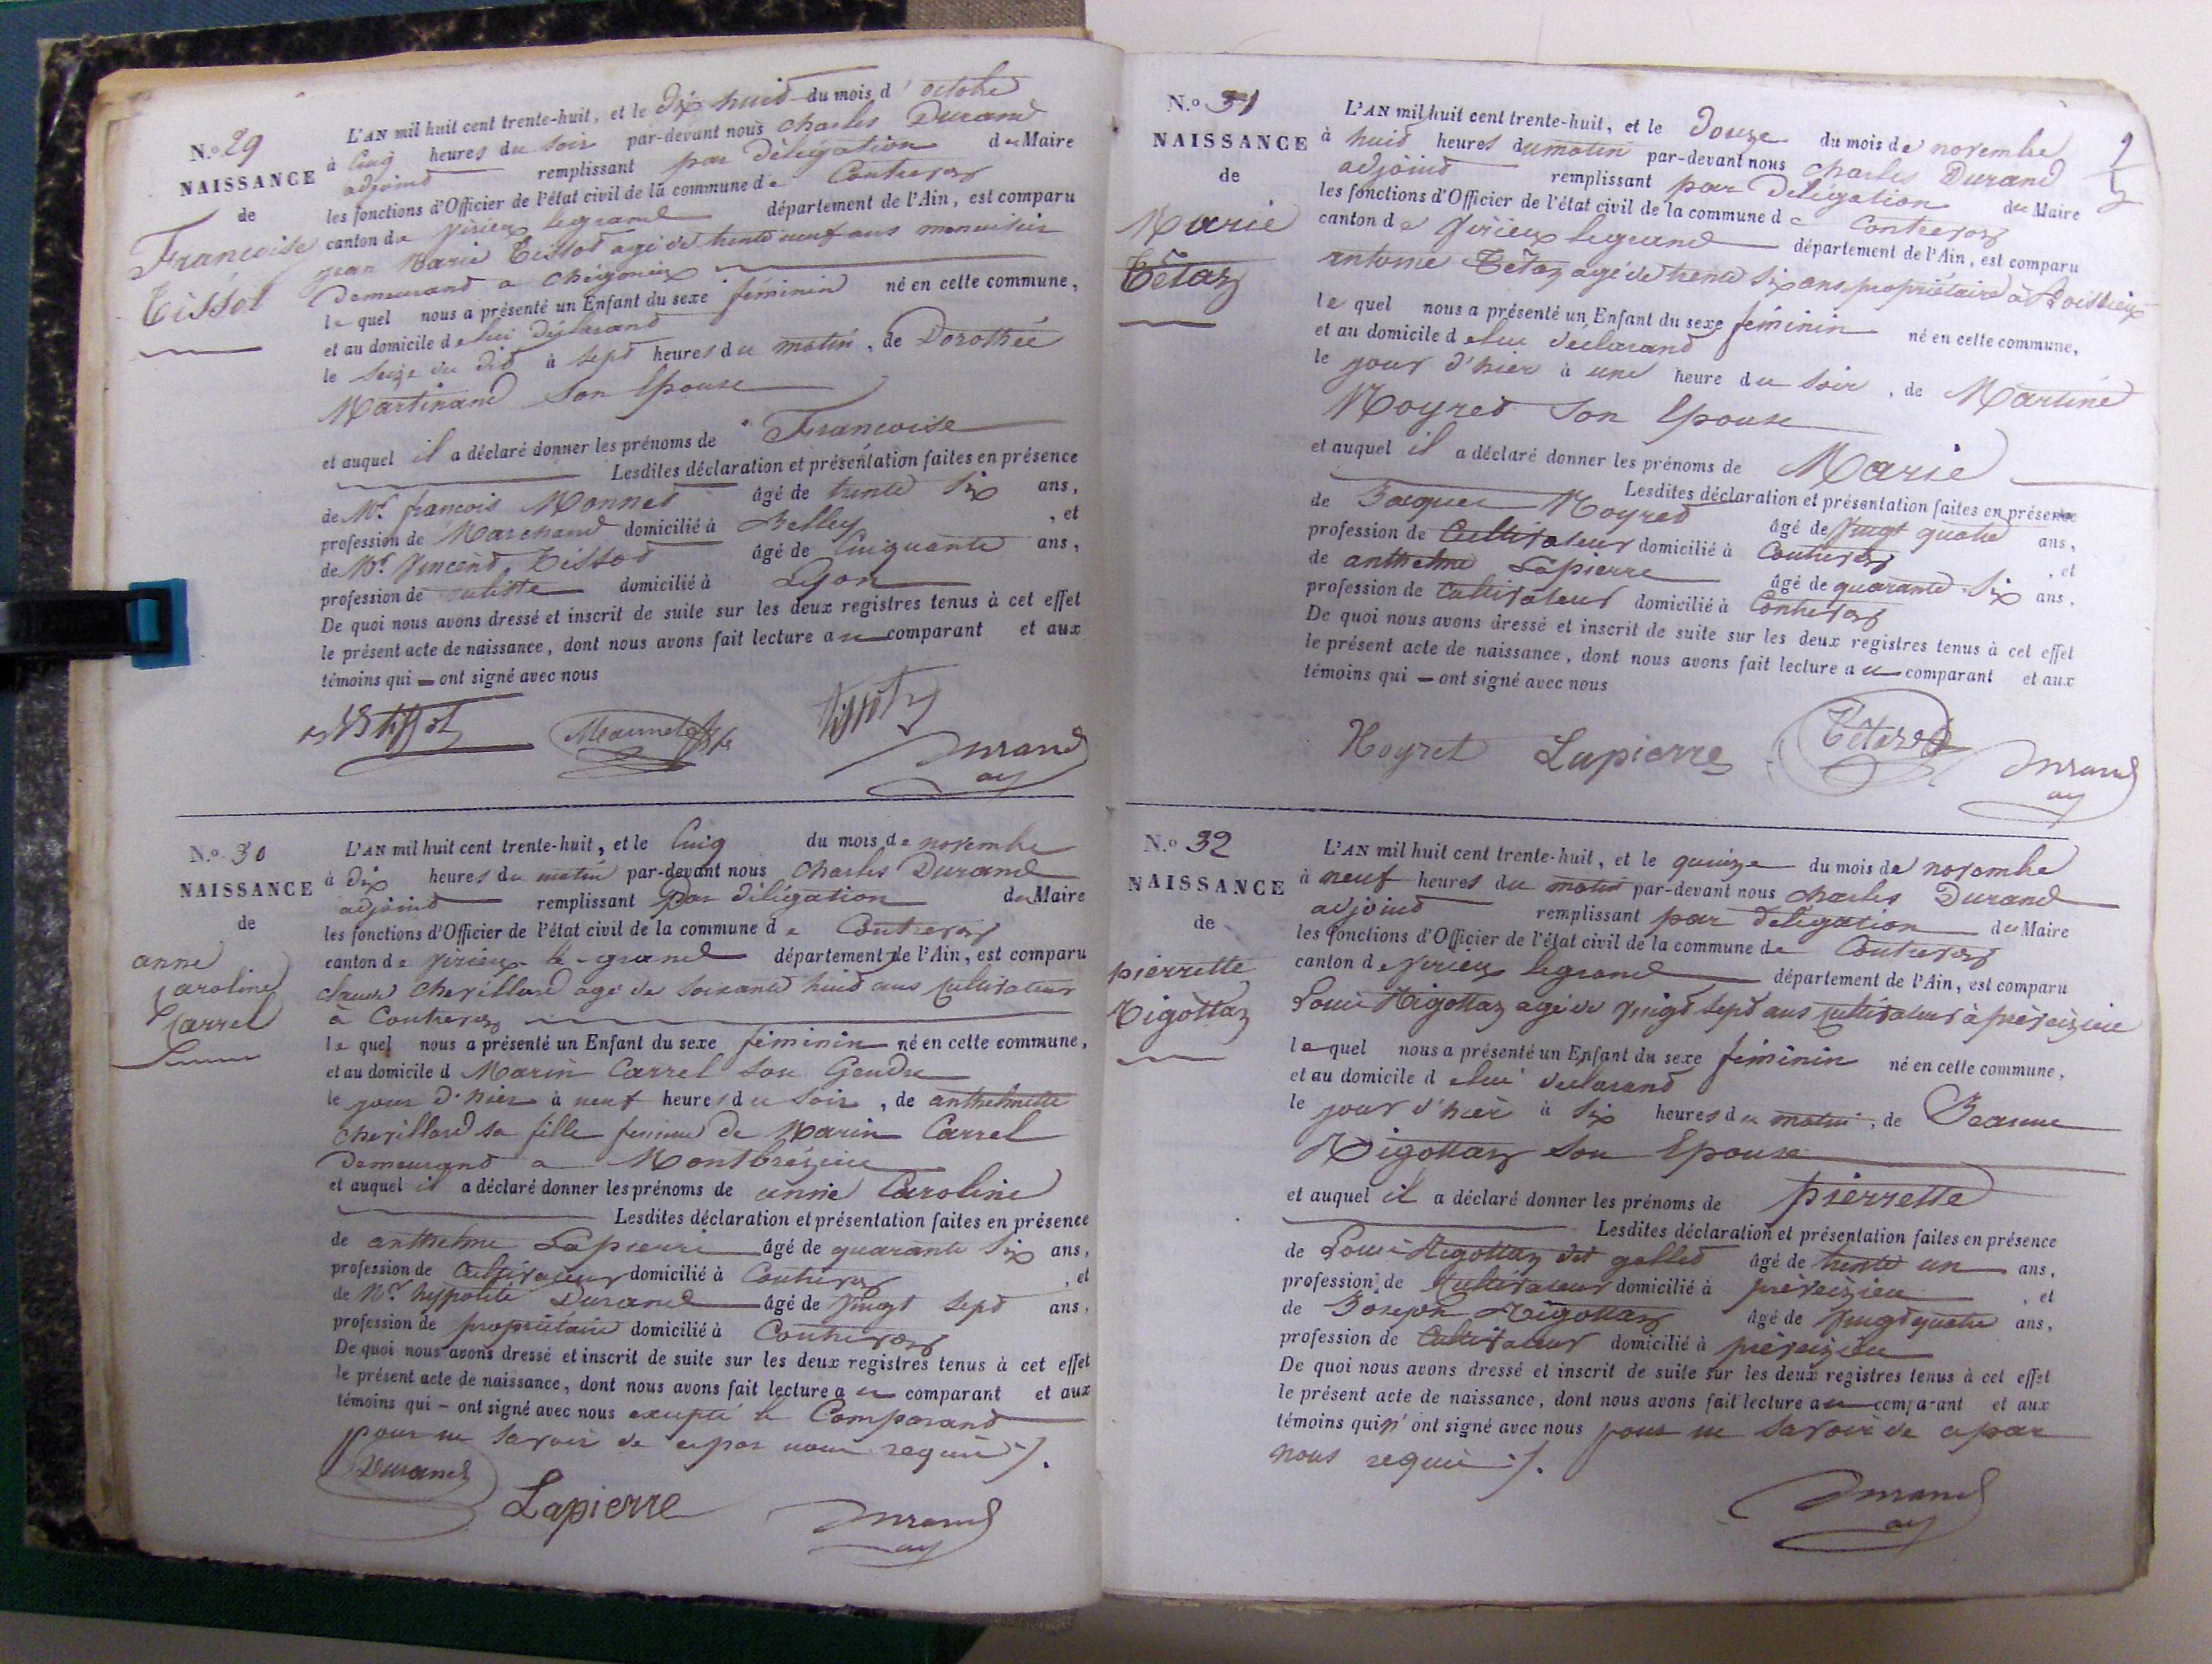 N.o 29
NAISSANCE
de
Francoise
Tissot
L'AN mil huit cent trente-huit, et le dix huit du mois d'octobre
à cinq heures du soir par-devant nous charles Durand
adjoint remplissant par délégation du Maire
les fonctions d'Officier de l'état civil de la commune de Contrevoz
canton de virieu legrand département de l'Ain, est comparu
jean Marie Tissot agé de trente neuf ans menuisier
Demeurant a
le quel nous a présenté un Enfant du sexe féminin né en cette commune,
et au domicile de lui déclarant
le seize du dit à sept heures du matin, de Dorothée
Martinand son Epouse
et auquel il a déclaré donner les prénoms de Francoise
Lesdites déclaration et présentation faites en présence
de Mr. françois Monnet âgé de trente six ans,
profession de Marchand domicilié à Belley, et
de Mr. vincent Tissot âgé de cinquante ans,
profession de domicilié à Lyon
De quoi nous avons dressé et inscrit de suite sur les deux registres tenus à cet effet
le présent acte de naissance, dont nous avons fait lecture au comparant et aux
témoins qui ont signé avec nous
Durand
N.o 30
NAISSANCE
de
anne
Caroline
Carrel
L'AN mil huit cent trente-huit, et le cinq du mois de novembre
à dix heures du matin par-devant nous charles Durand
adjoint remplissant par délégation du Maire
les fonctions d'Officier de l'état civil de la commune de Contrevoz
canton de virieu le grand département de l'Ain, est comparu
claude chevillard agé de soixante huit ans cultivateur
à Contrevoz
le quel nous a présenté un Enfant du sexe féminin né en cette commune,
et au domicile d Marin Carrel son Gendre
le jour d'hier à neuf heures du soir, de anthelmette
chevillard sa fille femme de Marin Carrel
Demeurant a Montbrézieu
et auquel il a déclaré donner les prénoms de anne Caroline
Lesdites déclaration et présentation faites en présence
de anthelme Lapierre âgé de quarante six ans,
profession de cultivateur domicilié à Contrevoz, et
de Mr hypolite Durand âgé de vingt sept ans,
profession de propriétaire domicilié à Contrevoz
De quoi nous avons dressé et inscrit de suite sur les deux registres tenus à cet effet
le présent acte de naissance, dont nous avons fait lecture au comparant et aux
témoins qui ont signé avec nous excepté le Comparant
pour ne savoir de ce par nous requis ./.
Durand
Lapierre
Durand
N.o 31
NAISSANCE
de
Marie
Tétaz
L'AN mil huit cent trente-huit, et le douze du mois de novembre
à huit heures du matin par-devant nous charles Durand
adjoint remplissant par délégation du Maire
les fonctions d'Officier de l'état civil de la commune de Contrevoz
canton de virieu legrand département de l'Ain, est comparu
antome Tétaz agé de trente six ans propriétaire à Boissieu
le quel nous a présenté un Enfant du sexe féminin né en cette commune,
et au domicile de lui déclarant
le jour d'hier à une heure du soir, de Martine
Moyret son Epouse
et auquel il a déclaré donner les prénoms de Marie
Lesdites déclaration et présentation faites en présence
de Jacques Moyret âgé de vingt quatre ans,
profession de Cultivateur domicilié à Contrevoz, et
de anthelme Lapierre âgé de quarante six ans,
profession de cultivateur domicilié à Contrevoz
De quoi nous avons dressé et inscrit de suite sur les deux registres tenus à cet effet
le présent acte de naissance, dont nous avons fait lecture au comparant et aux
témoins qui ont signé avec nous
Moyret Lapierre Tétaz Durand
N.o 32
NAISSANCE
de
pierrette
Rigottaz
L'AN mil huit cent trente-huit, et le quinze du mois de novembre
à neuf heures du matin par-devant nous charles Durand
adjoint remplissant par délégation du Maire
les fonctions d'Officier de l'état civil de la commune de Contrevoz
canton de virieu legrand département de l'Ain, est comparu
Louis Rigottaz agé de vingt sept ans cultivateur à prèveizieu
le quel nous a présenté un Enfant du sexe féminin né en cette commune,
et au domicile de lui déclarant
le jour d'hier à six heures du matin, de Jeanne
Rigottaz son Epouse
et auquel il a déclaré donner les prénoms de pierrette
Lesdites déclaration et présentation faites en présence
de Louis Rigottaz dit gallet âgé de trente un ans,
profession de Cultivateur domicilié à prèveizieu, et
de Joseph Rigottaz âgé de vingt quatre ans,
profession de Cultivateur domicilié à prèveizieu
De quoi nous avons dressé et inscrit de suite sur les deux registres tenus à cet effet
le présent acte de naissance, dont nous avons fait lecture au comparant et aux
témoins qui n'ont signé avec nous pour ne savoir de ce par
nous requis ./.
Durand